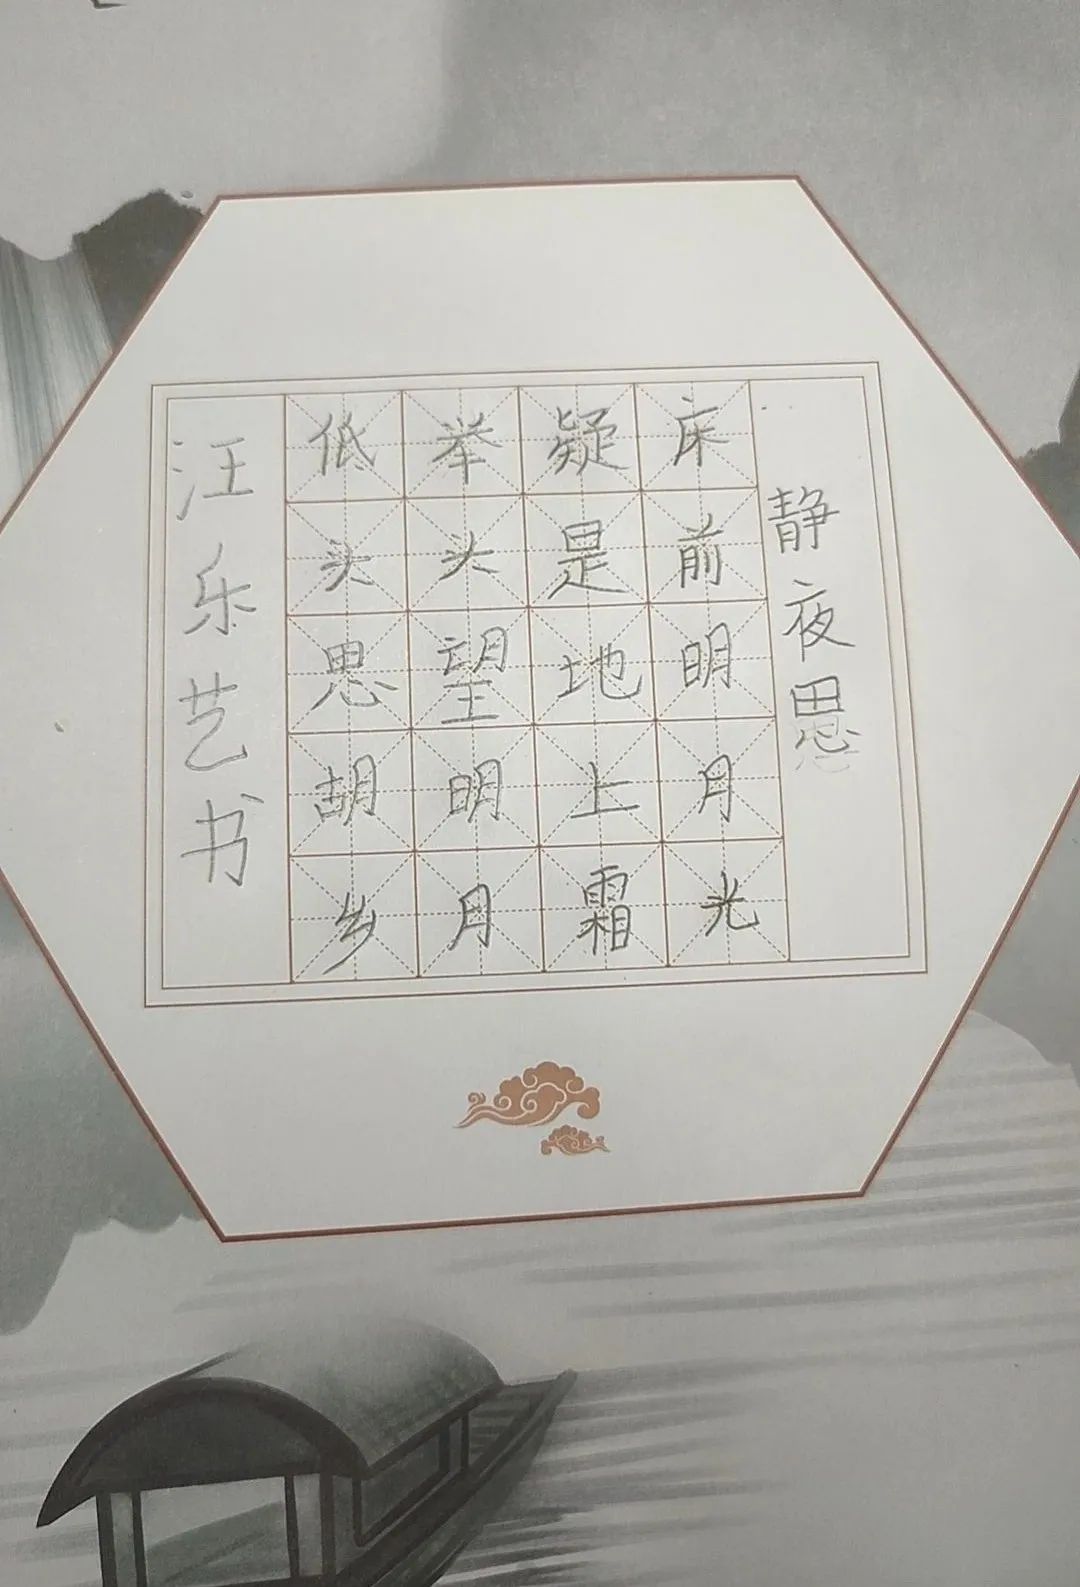 静夜思
床前明月光
疑是地上霜
举头望明月
低头思胡乡
汪乐艺书